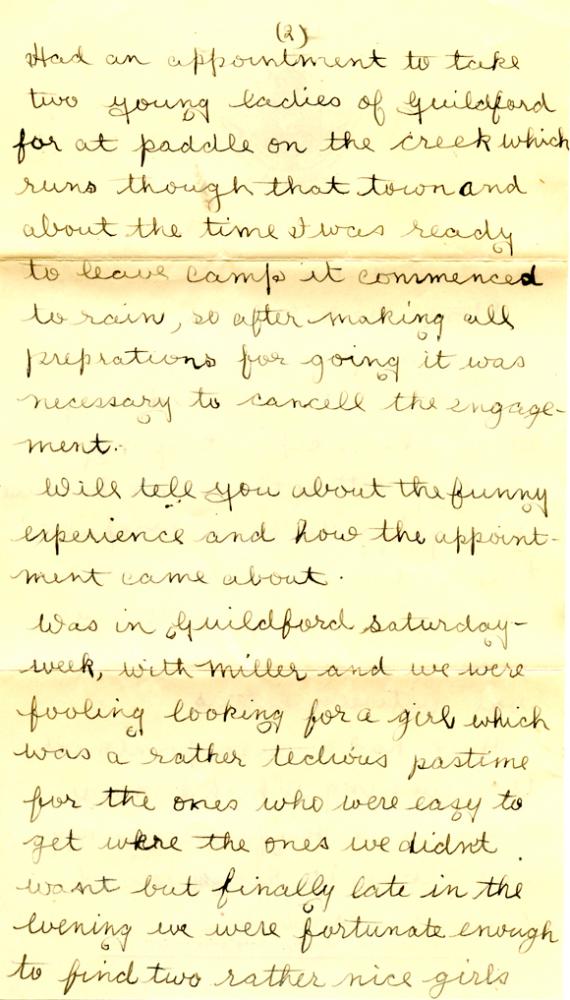 (2)
Had an appointment to take
two young ladies of Guildford
for at paddle on the creek which
runs though that town and
about the time I was ready
to leave camp it commenced
to rain, so after making all
preprations for going it was
necessary to cancell the engage-
ment.
Will tell you about the funny
experience and how the appoint-
ment came about.
Was in Guildford saturday-
week, with Miller and we were
fooling looking for a girl which
was a rather tedious pastime
for the ones who were easy to
get were the ones we didnt
want but finally late in the
evening we were fortunate enough
to find two rather nice girls